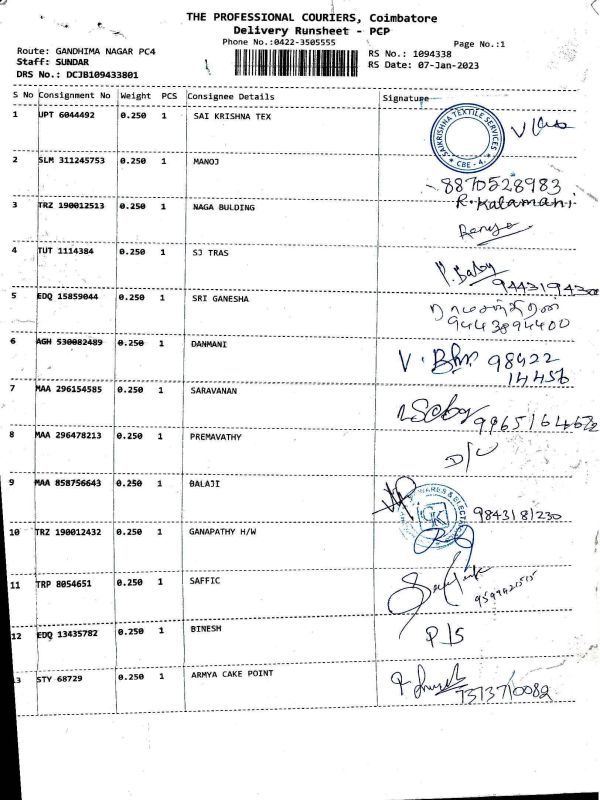 THE PROFESSIONAL COURIERS, Coimbatore
Delivery Runsheet - PCP
Phone No.:0422-3505555
Page No.:1
Route: GANDHIMA NAGAR PC4
Staff: SUNDAR
DRS No.: DCJB109433801
RS No.: 1094338
RS Date: 07-Jan-2023
S No Consignment No Weight PCS Consignee Details Signature
1 UPT 6044492 0.250 1 SAI KRISHNA TEX
SAIKRISHNA TEXTILE SERVICES
* CBE - 4. *
2 SLM 311245753 0.250 1 MANOJ
8870528983
3 TRZ 190012513 0.250 1 NAGA BULDING
R. Kalamani
4 TUT 1114384 0.250 1 SJ TRAS
P. Baby
5 EDQ 15859044 0.250 1 SRI GANESHA
9443894400
6 AGH 530082489 0.250 1 DANMANI
98422
14456
7 MAA 296154585 0.250 1 SARAVANAN
8 MAA 296478213 0.250 1 PREMAVATHY
D/L
9 MAA 858756643 0.250 1 BALAJI
9843181230
10 TRZ 190012432 0.250 1 GANAPATHY H/W
11 TRP 8054651 0.250 1 SAFFIC
12 EDQ 13435782 0.250 1 BINESH
P/S
13 STY 68729 0.250 1 ARMYA CAKE POINT
7373710082